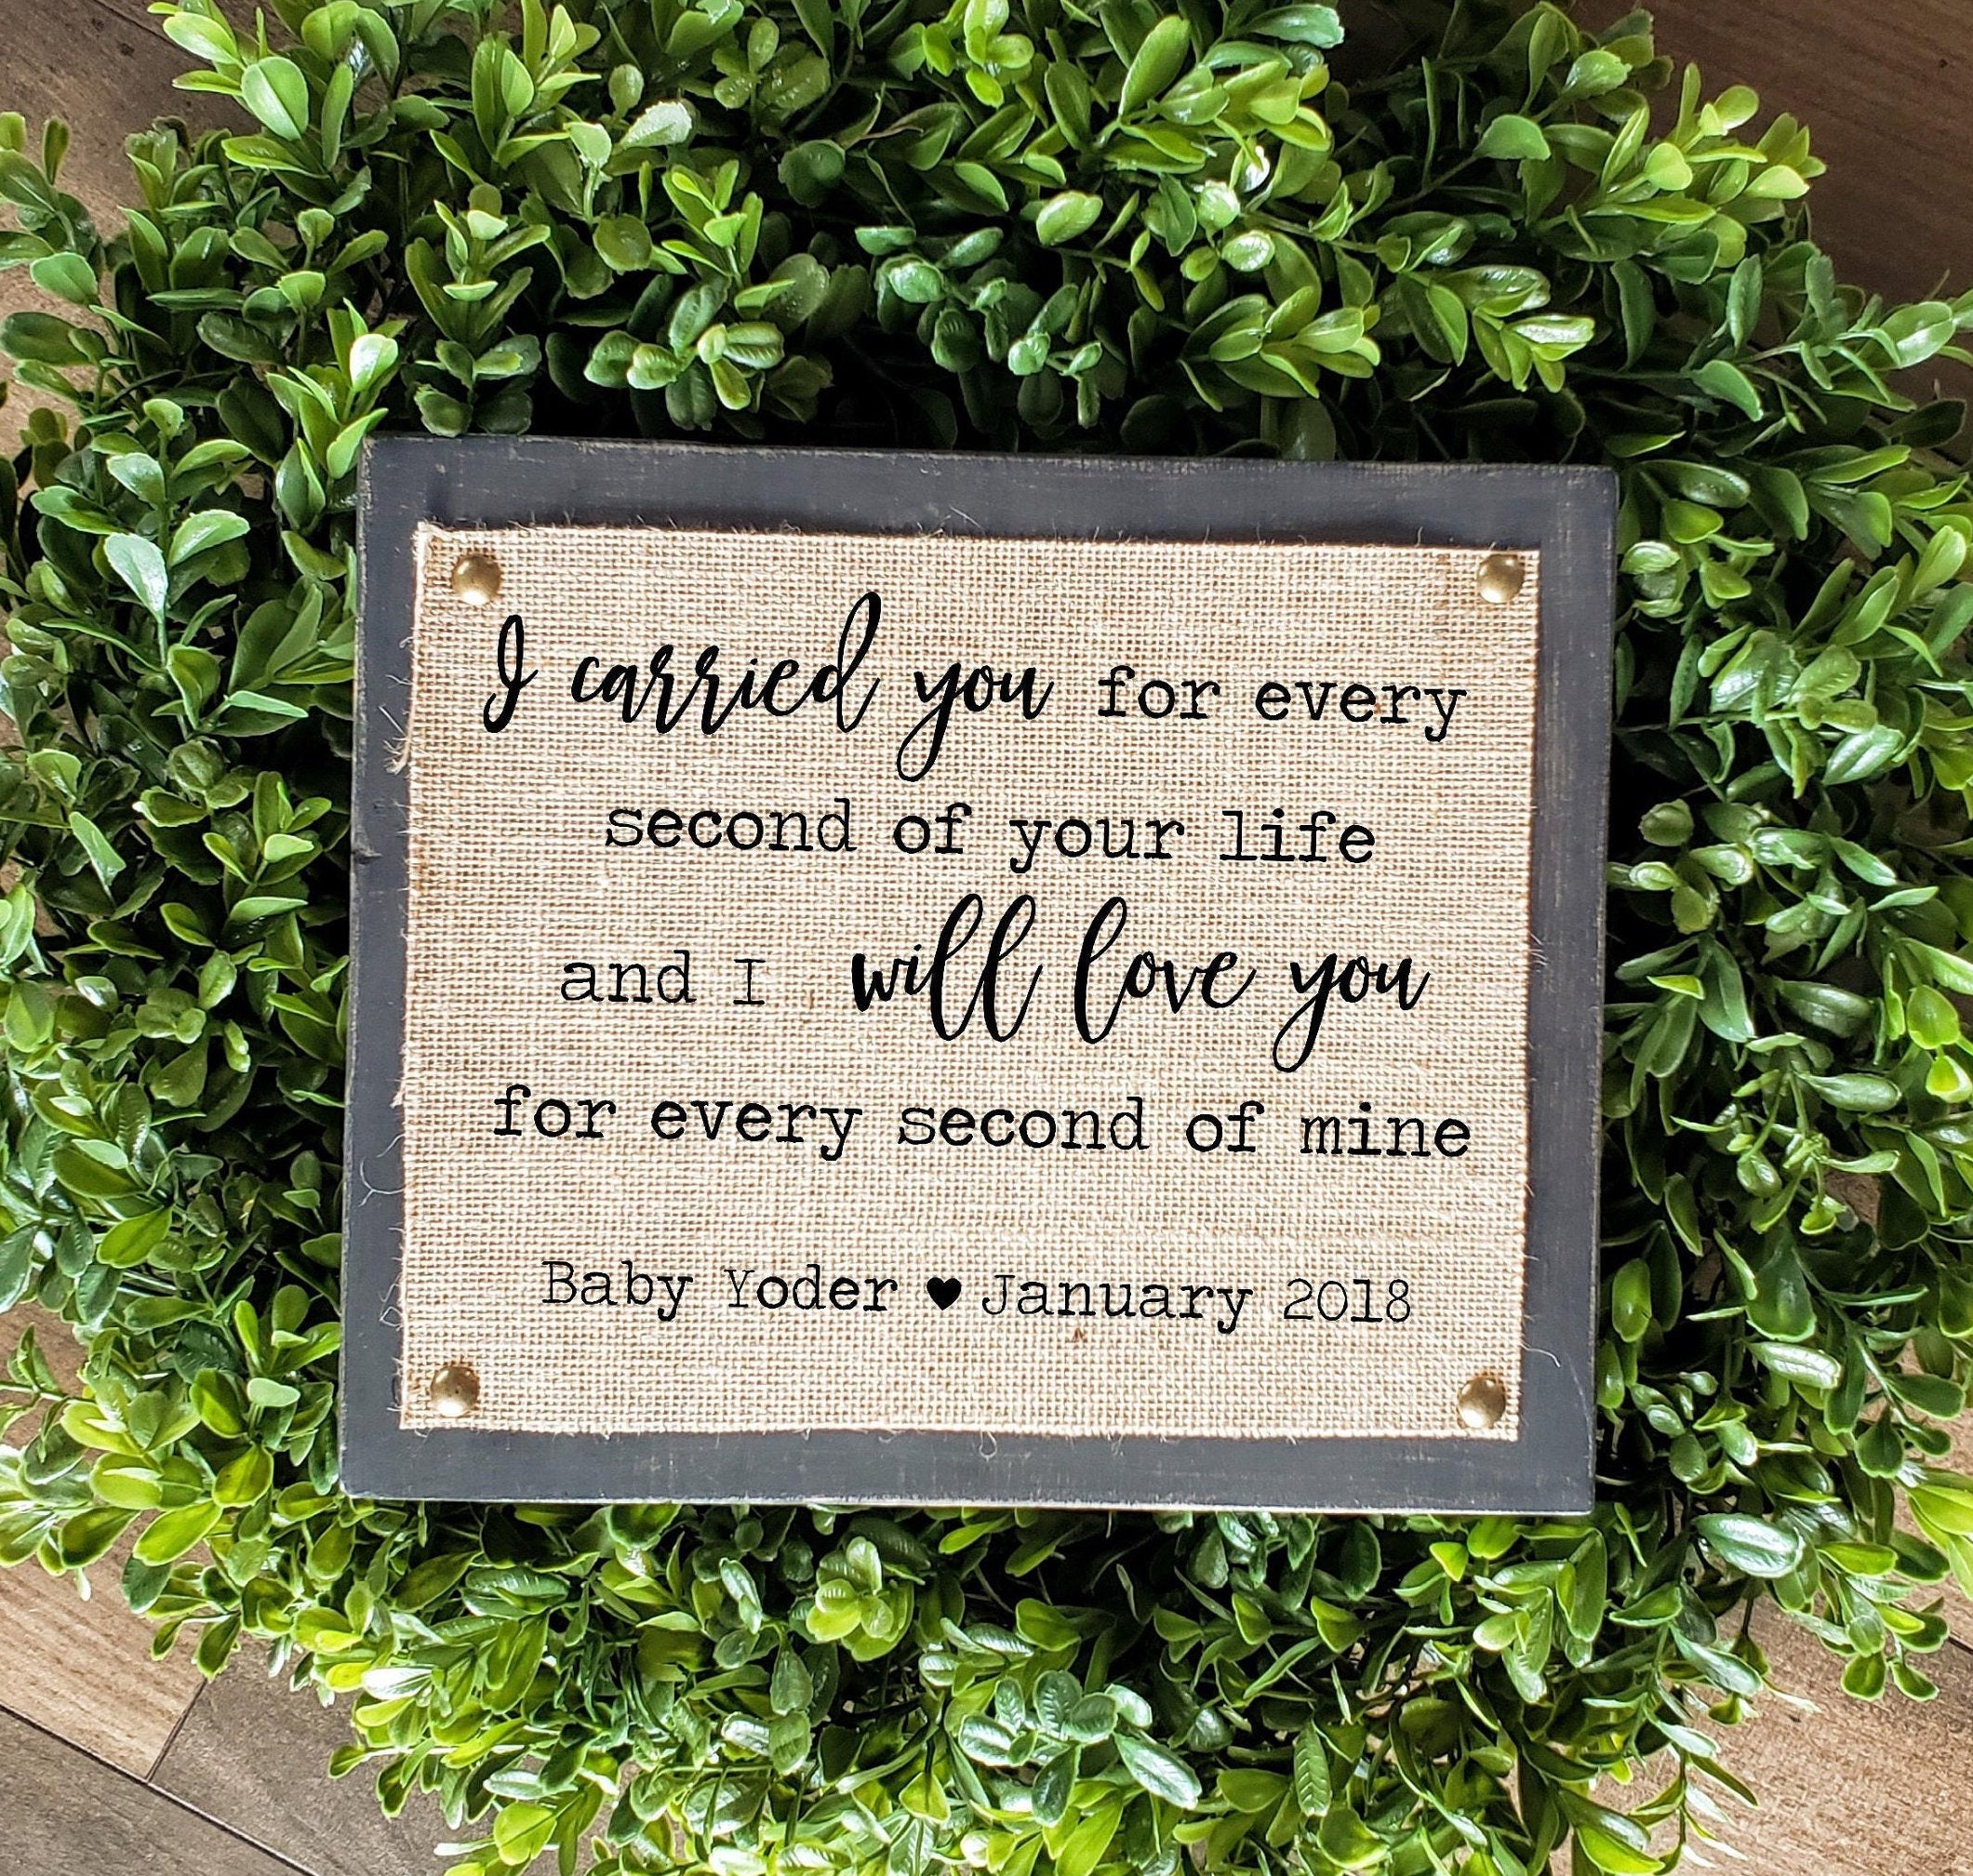 I carried you for every
second of your life
and I will love you
for every second of mine
Baby Yoder ♥ January 2018